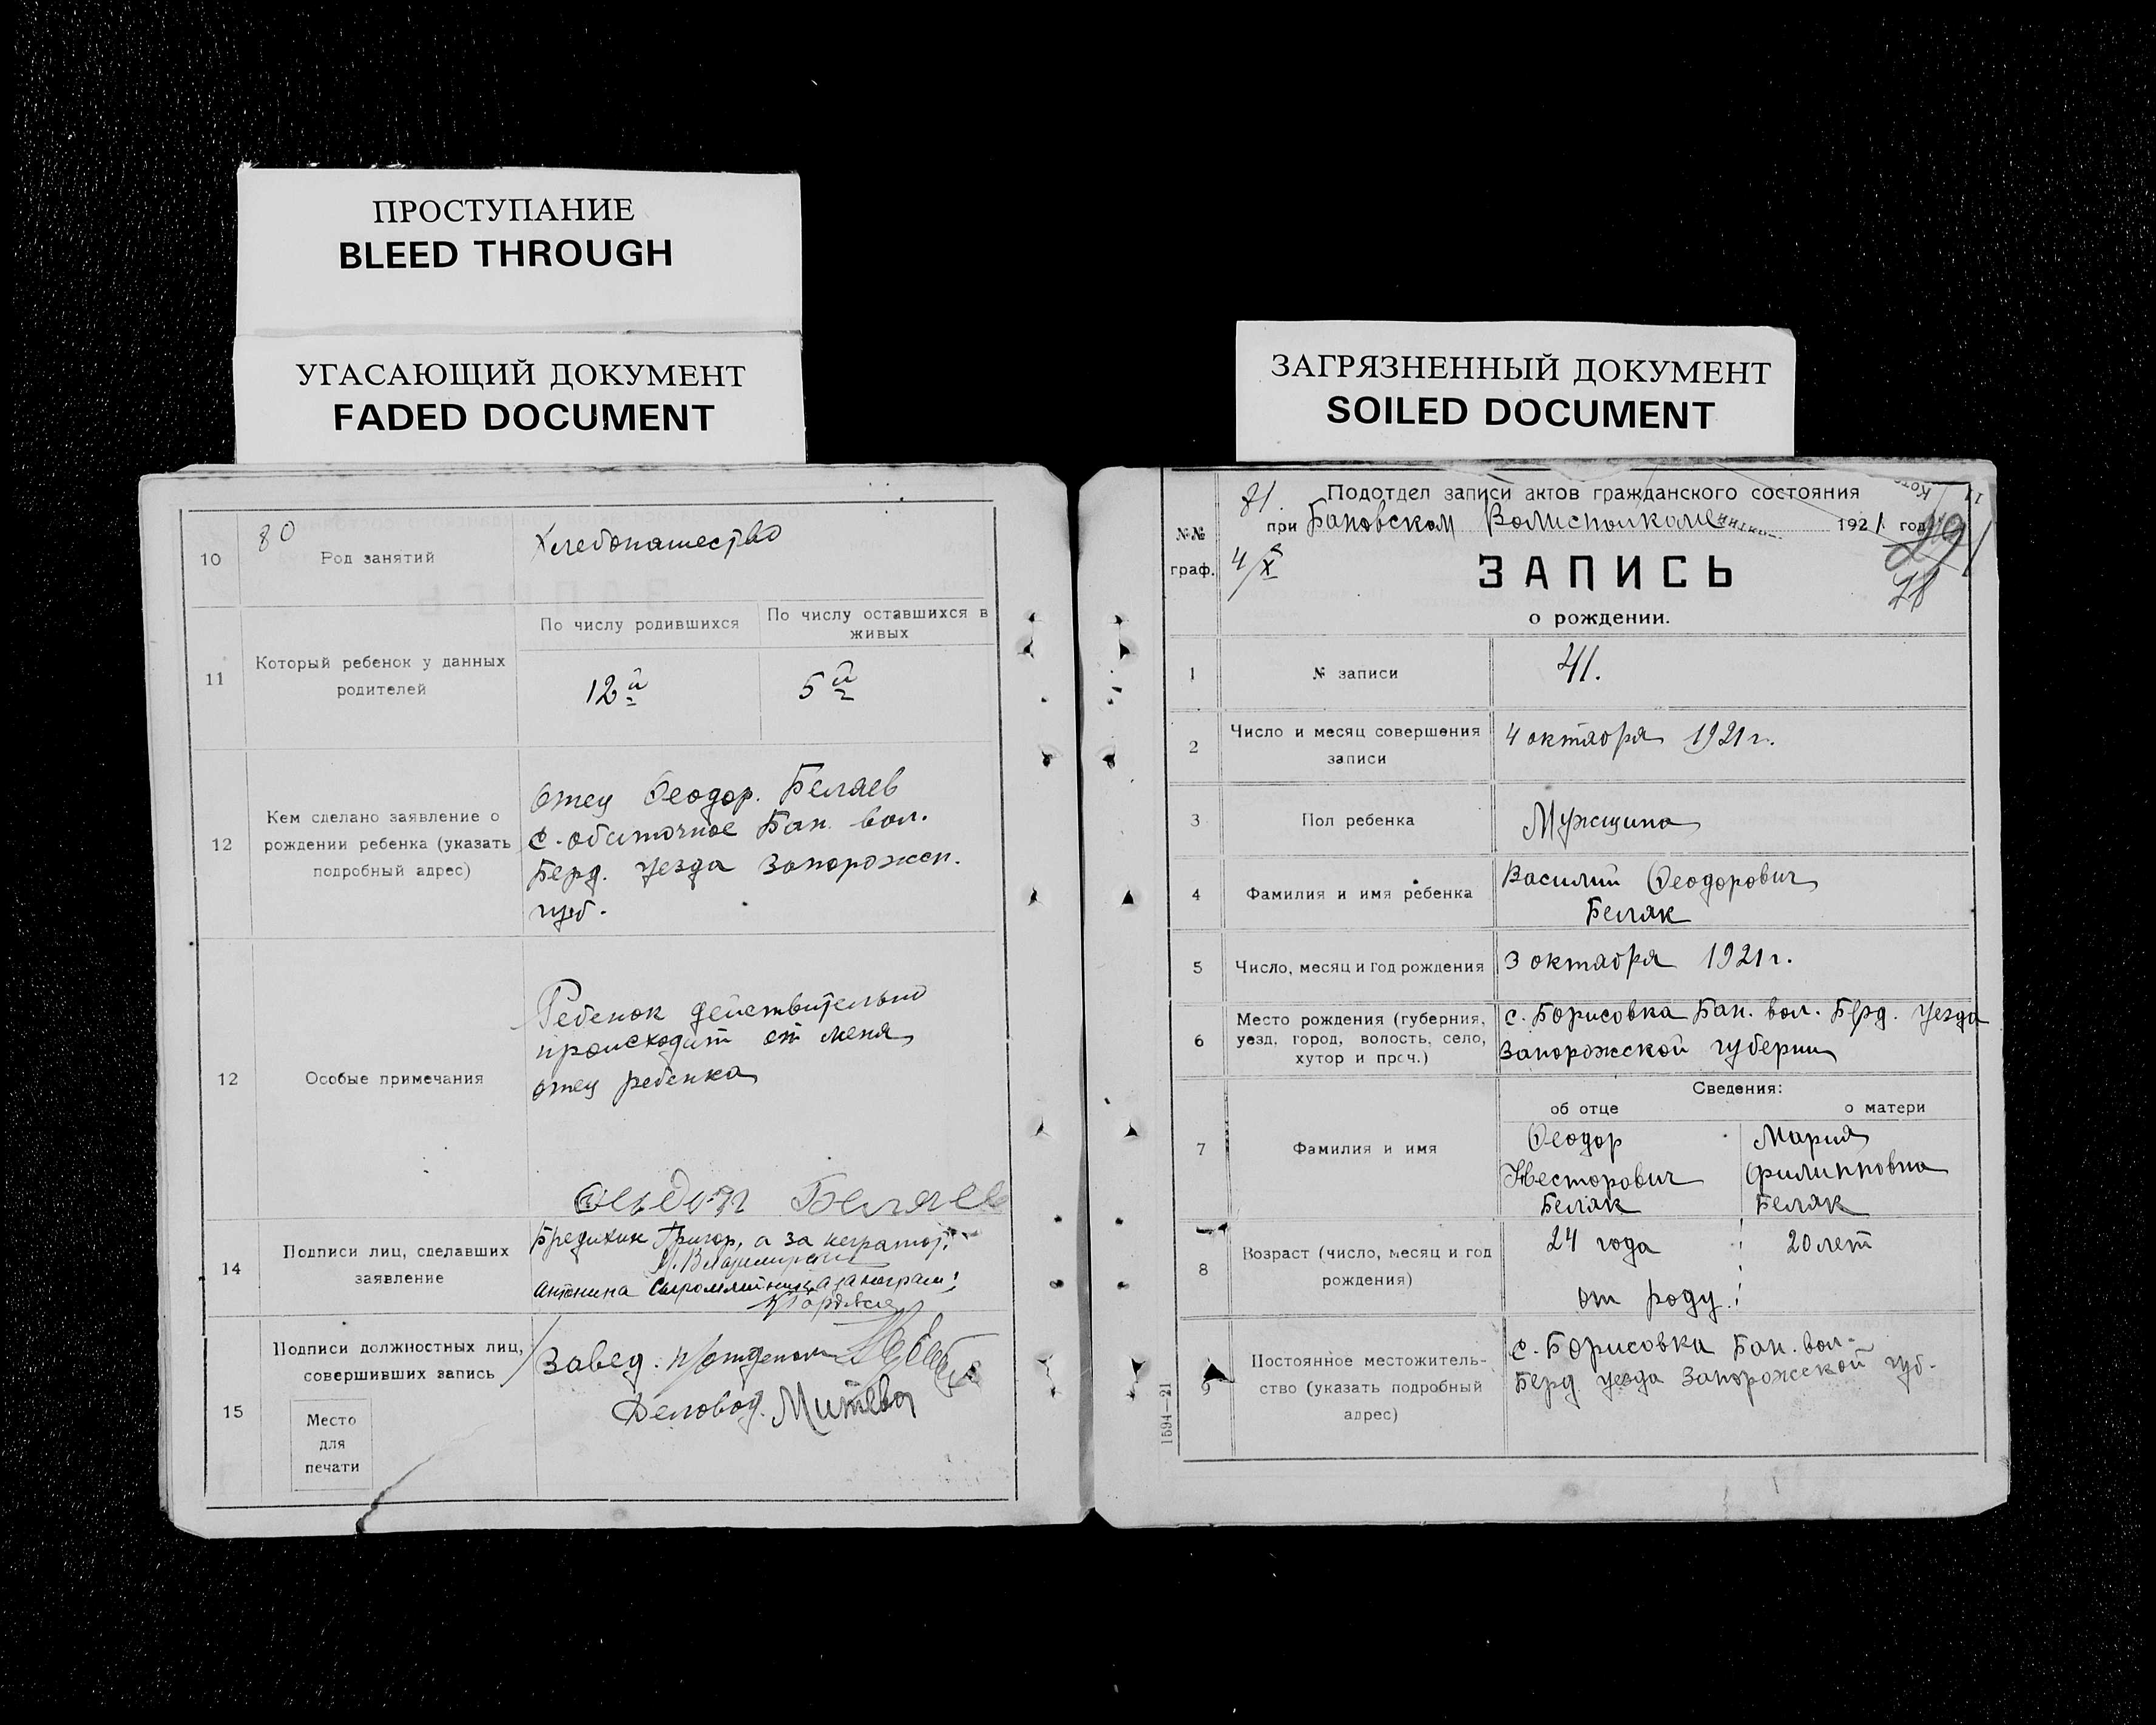 ПРОСТУПАНИЕ
BLEED THROUGH
УГАСАЮЩИЙ ДОКУМЕНТ
FADED DOCUMENT
80
10
Род занятий
Хлебопашество
11
Который ребенок у данных
родителей
По числу родившихся
По числу оставшихся в
живых
12й
5й
12
Кем сделано заявление о
рождении ребенка (указать
подробный адрес)
Отец Феодор. Беляев
с. обиточное Бан. вол.
Берд. уезда Запорожск.
губ.
12
Особые примечания
Ребенок действительно
происходит от меня
отец ребенка
Беляев
14
Подписи лиц, сделавших
заявление
Григор, а за неграмот.
Антонина а за неграм:
15
Подписи должностных лиц,
совершивших запись
Место
для
печати
Завед. п/отделом
Деловод.
ЗАГРЯЗНЕННЫЙ ДОКУМЕНТ
SOILED DOCUMENT
№№
граф.
Подотдел записи актов гражданского состояния
при Бановском Волисполкоме 1921 год
4/X
ЗАПИСЬ
о рождении.
1
№ записи
41.
2
Число и месяц совершения
записи
4 октября 1921 г.
3
Пол ребенка
Мужщина
4
Фамилия и имя ребенка
Василий Феодорович
Беляк
5
Число, месяц и год рождения
3 октября 1921 г.
6
Место рождения (губерния,
уезд, город, волость, село,
хутор и проч.)
с. Борисовка Бан. вол. Берд. уезда
Запорожской губернии
Сведения:
об отце
о матери
7
Фамилия и имя
Феодор
Несторович
Беляк
Мария
Филипповна
Беляк
8
Возраст (число, месяц и год
рождения)
24 года
20 лет
от роду
9
Постоянное местожитель-
ство (указать подробный
адрес)
с. Борисовка Бан. вол.
Берд. уезда Запорожской губ.
1594—21